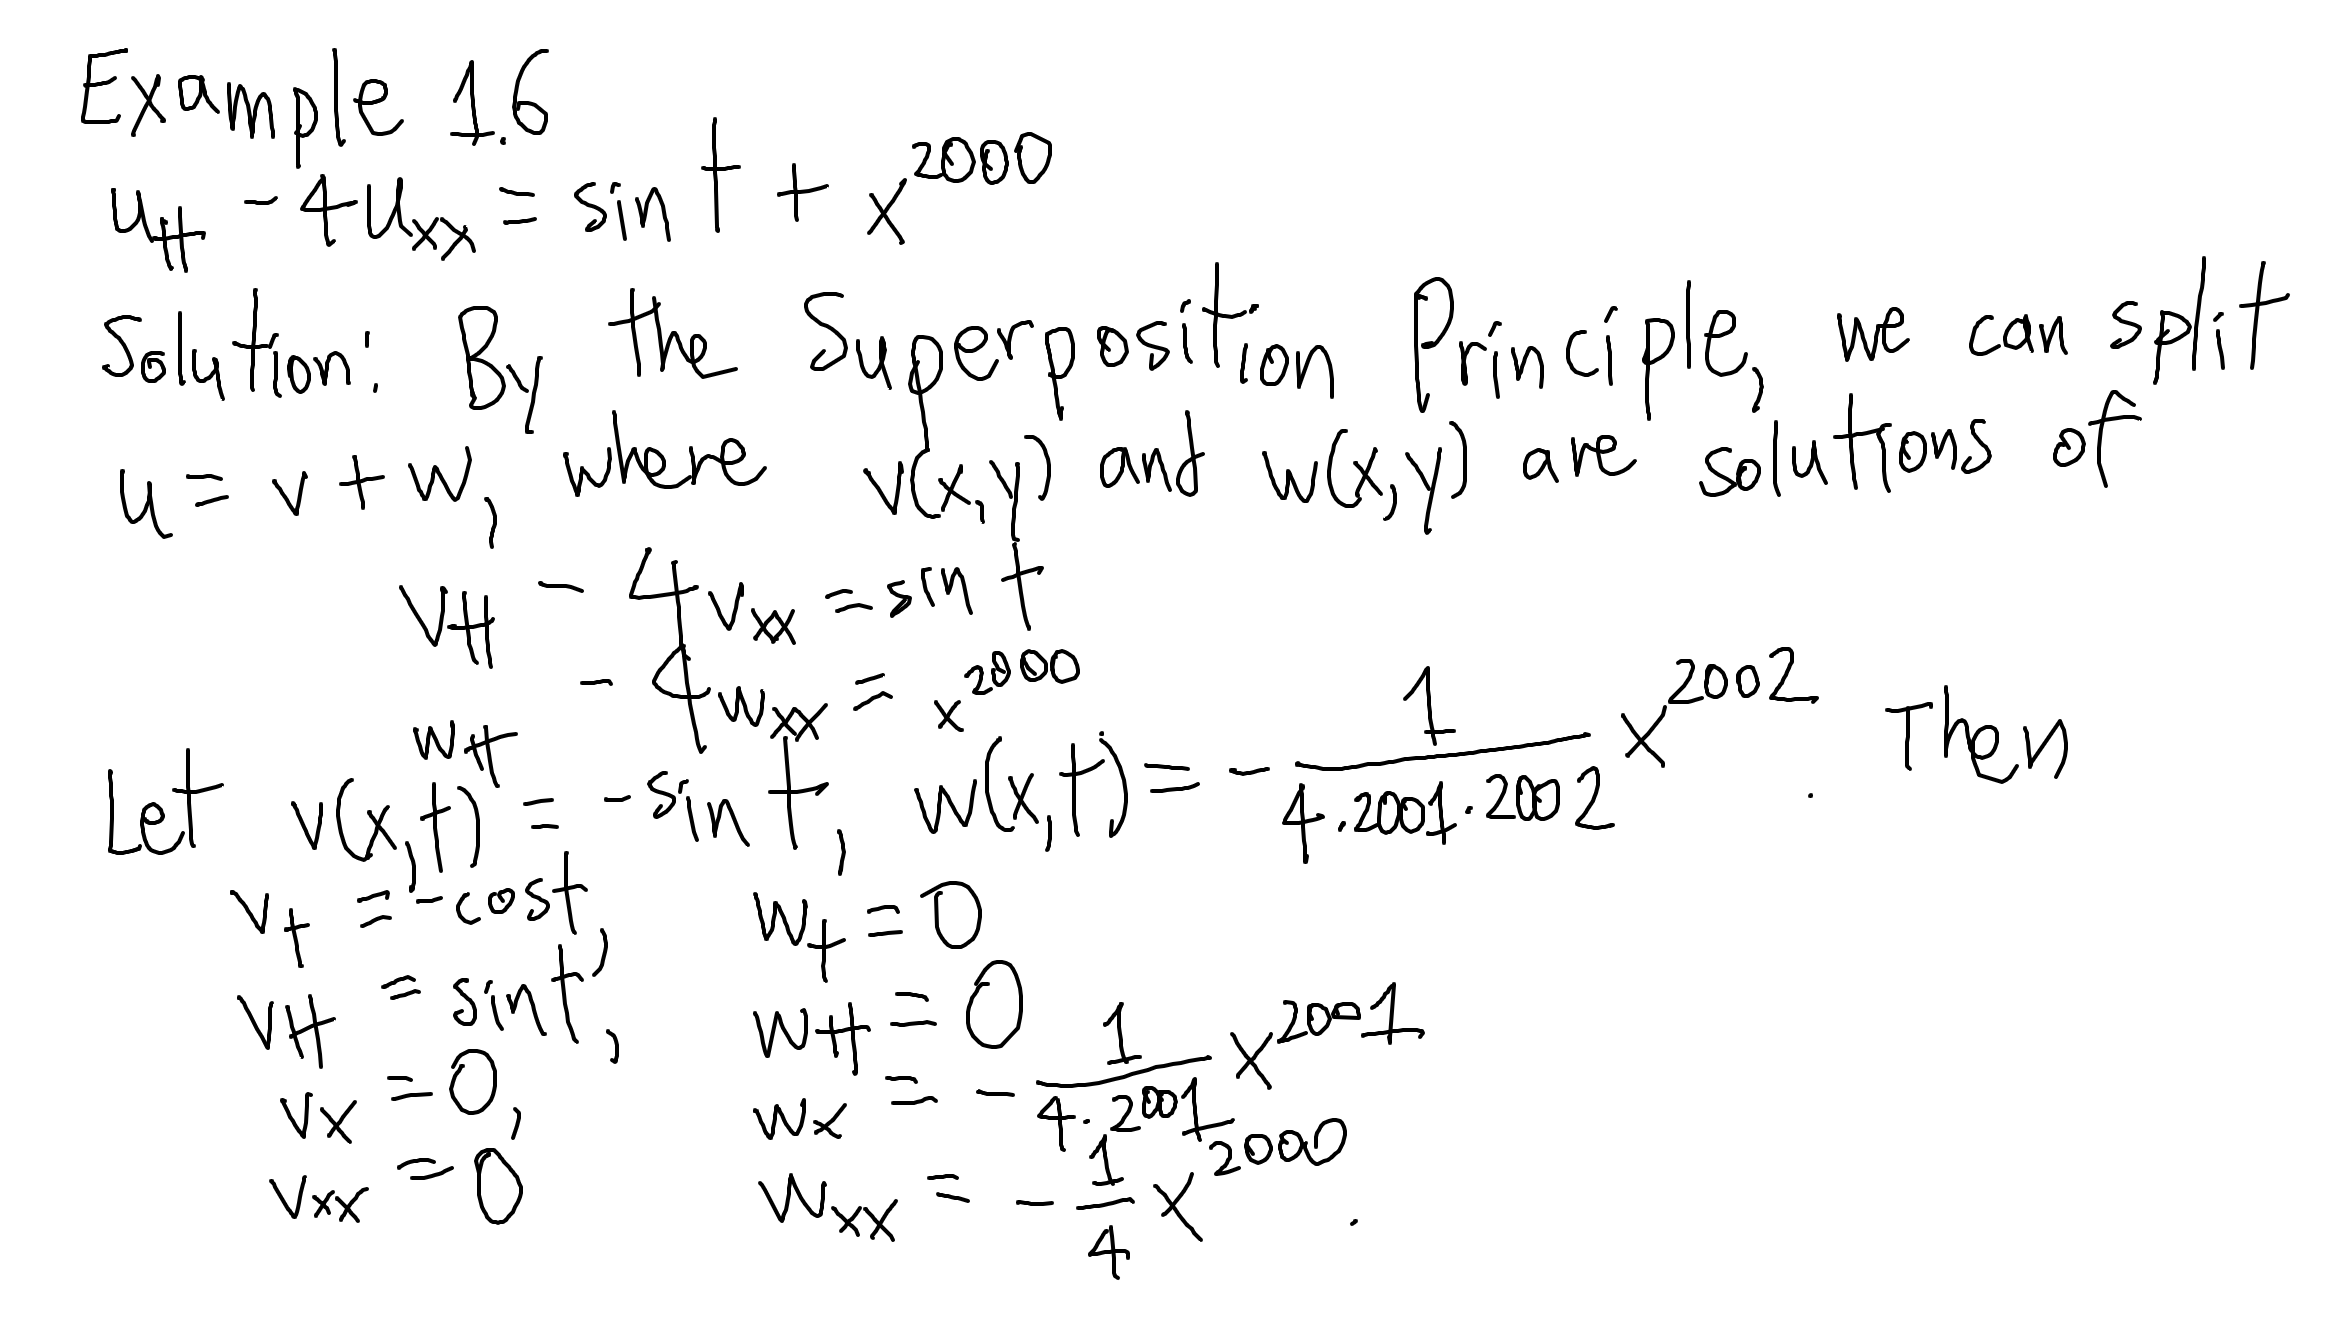 Example 1.6
u_tt - 4u_xx = sin t + x^2000
Solution: By the Superposition Principle, we can split
u = v + w, where v(x,y) and w(x,y) are solutions of
v_tt - 4v_xx = sin t
w_tt - 4w_xx = x^2000
Let v(x,t) = -sin t, w(x,t) = - 1/(4·2001·2002) x^2002. Then
v_t = -cos t, w_t = 0
v_tt = sin t, w_tt = 0
v_x = 0, w_x = - 1/(4·2001) x^2001
v_xx = 0 w_xx = - 1/4 x^2000.